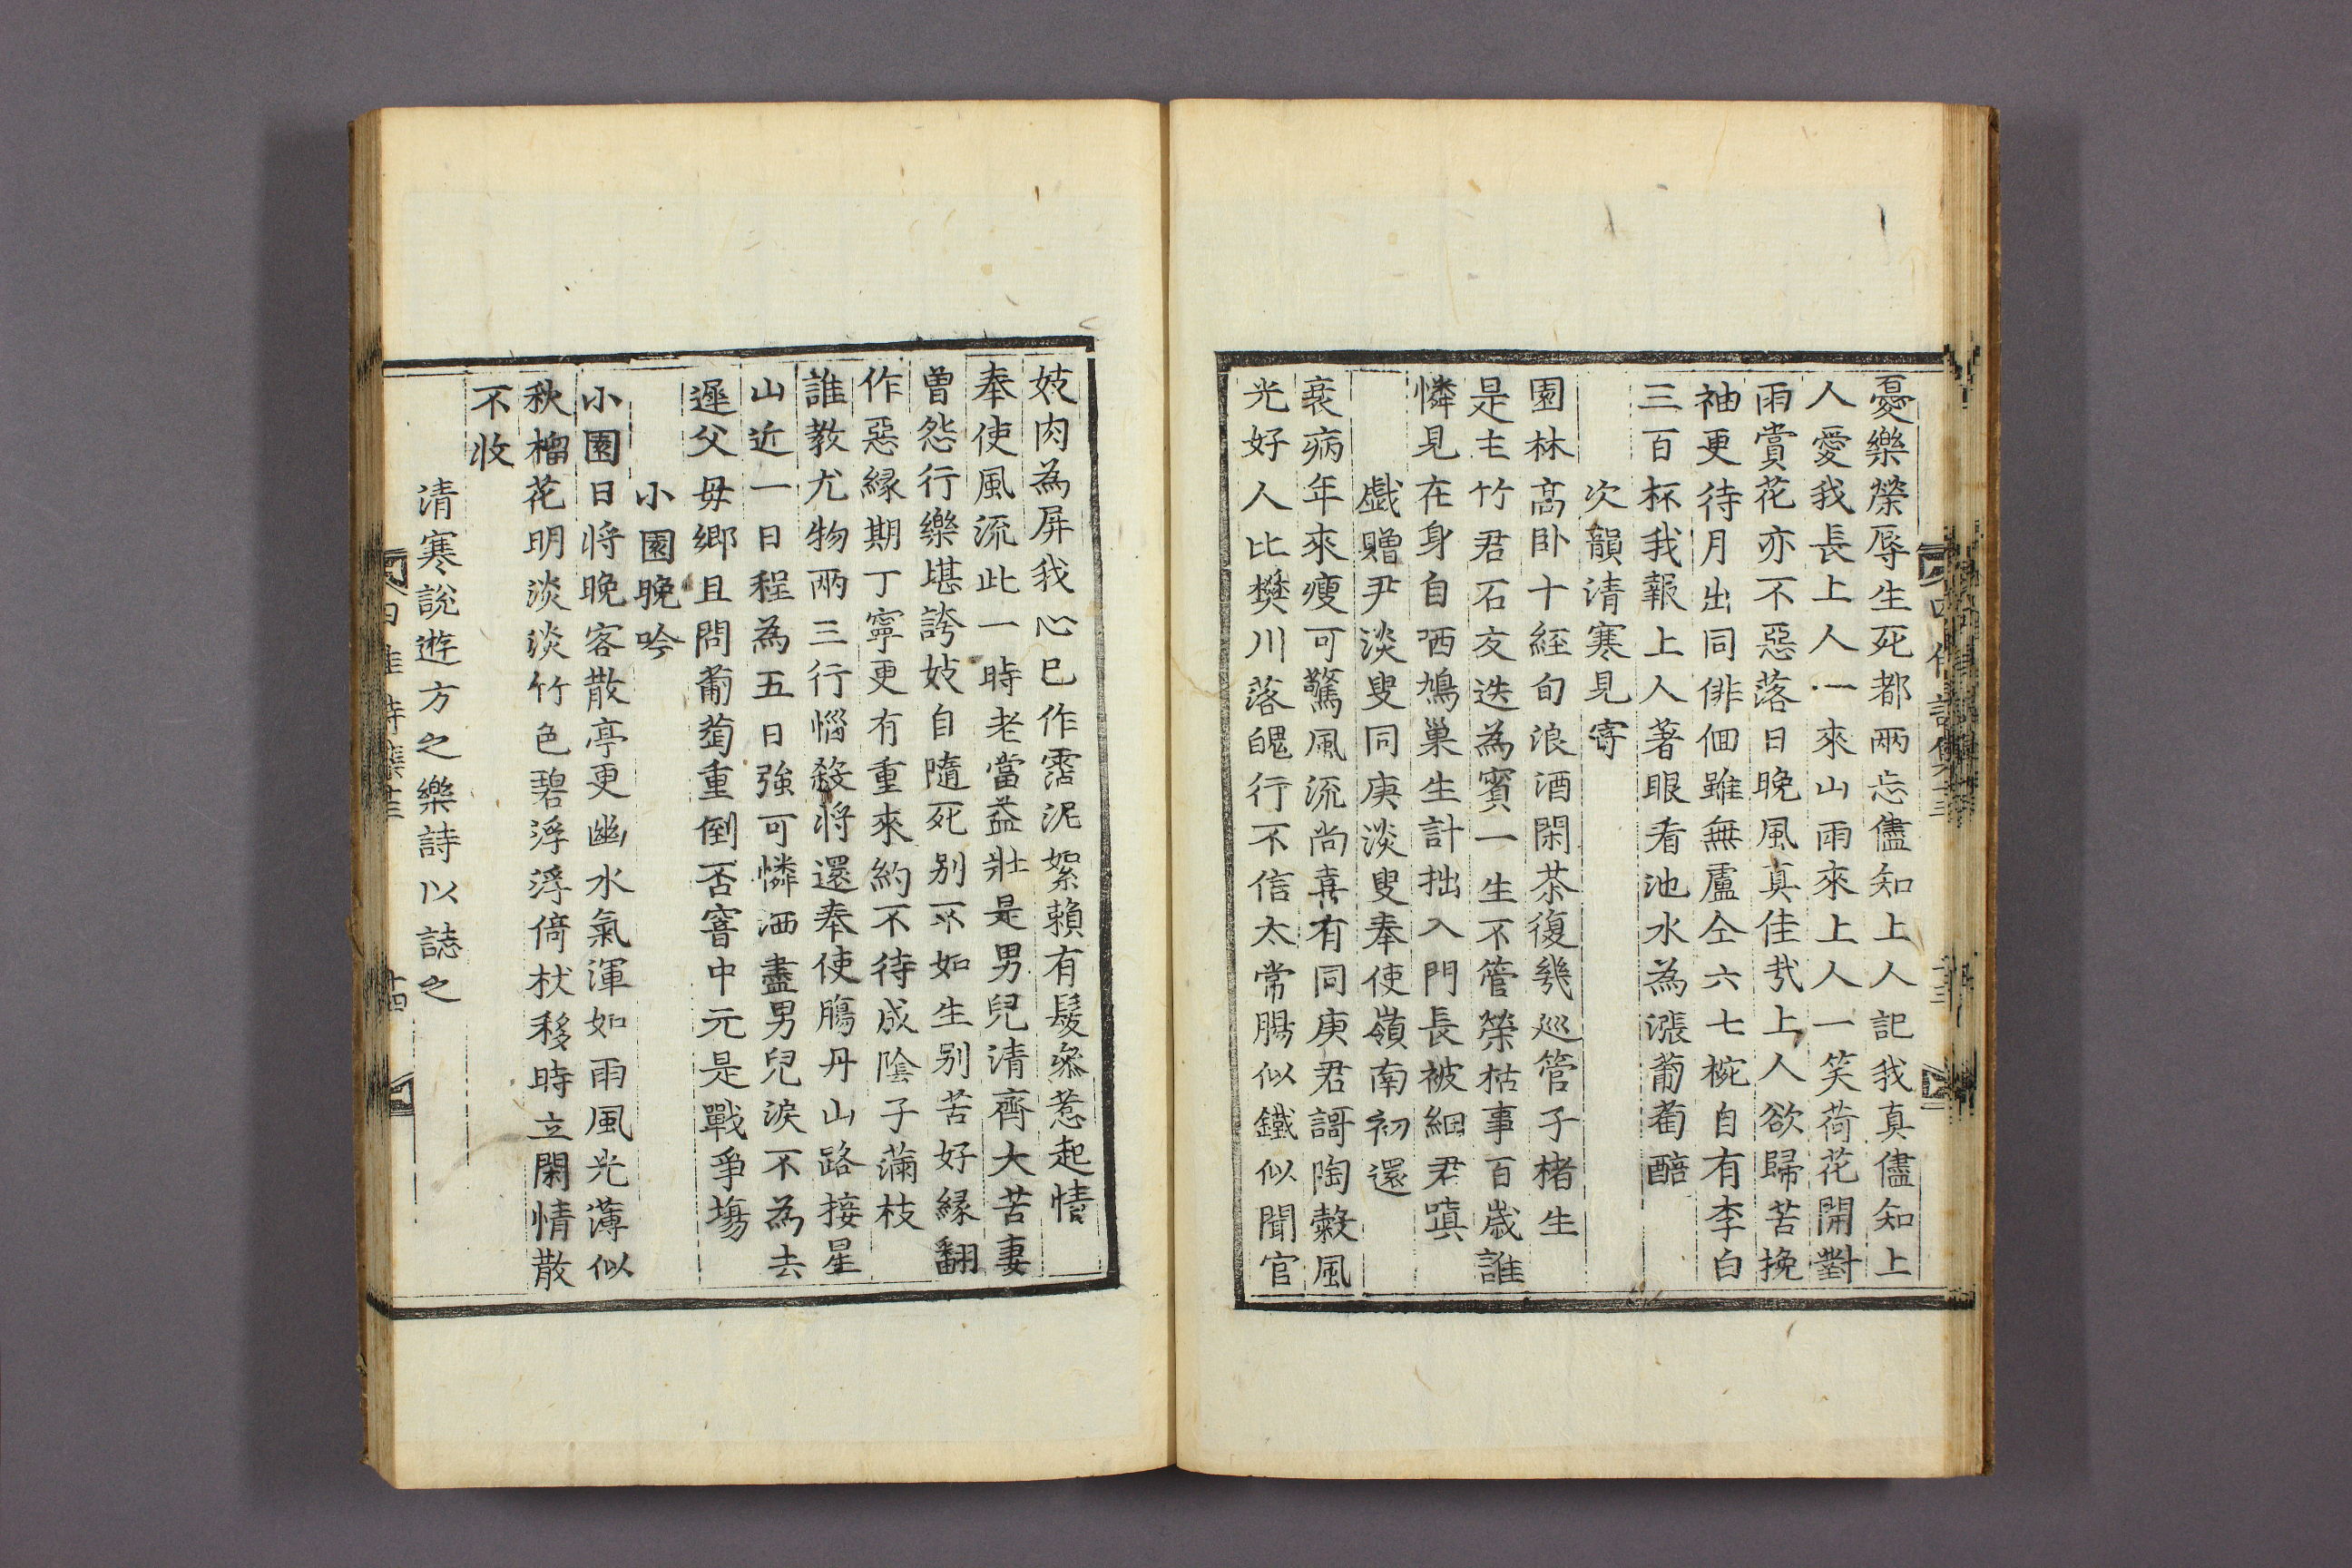 憂樂榮辱生死都兩忘儘知上人記我真儘知上
人愛我長上人一來山雨來上人一笑荷花開對
雨賞花亦不惡落日晚風真佳㢤上人欲歸苦挽
袖更待月出同俳佪雖無盧仝六七椀自有李白
三百杯我報上人著眼看池水為漲葡萄醅
次韻清寒見寄
園林高卧十經旬浪酒閑茶復幾巡管子楮生
是主竹君石友迭為賓一生不管榮枯事百歲誰
憐見在身自哂鳩巢生計拙入門長被細君嗔
戱贈尹淡叟同庚淡叟奉使嶺南初還
衰病年來瘦可驚風流尚喜有同庚君謌陶糓風
光好人比樊川落魄行不信太常腸似鐵似聞官
妓肉為屏我心已作霑泥絮賴有髮叅惹起情
奉使風流此一時老當益壯是男兒清齊大苦妻
曾怨行樂堪誇妓自隨死别不如生别苦好緣翻
作惡緣期丁寧更有重來約不待成陰子滿枝
誰教尤物兩三行惱殺將還奉使腸丹山路接星
山近一日程為五日強可憐洒盡男兒淚不為去
遲父母鄉且問葡萄重倒否窨中元是戰爭塲
小園晚吟
小園日將晚客散亭更幽水氣渾如雨風光薄似
秋榴花明淡淡竹色碧浮浮倚杖移時立閑情散
不收
清寒說遊方之樂詩以誌之
十四